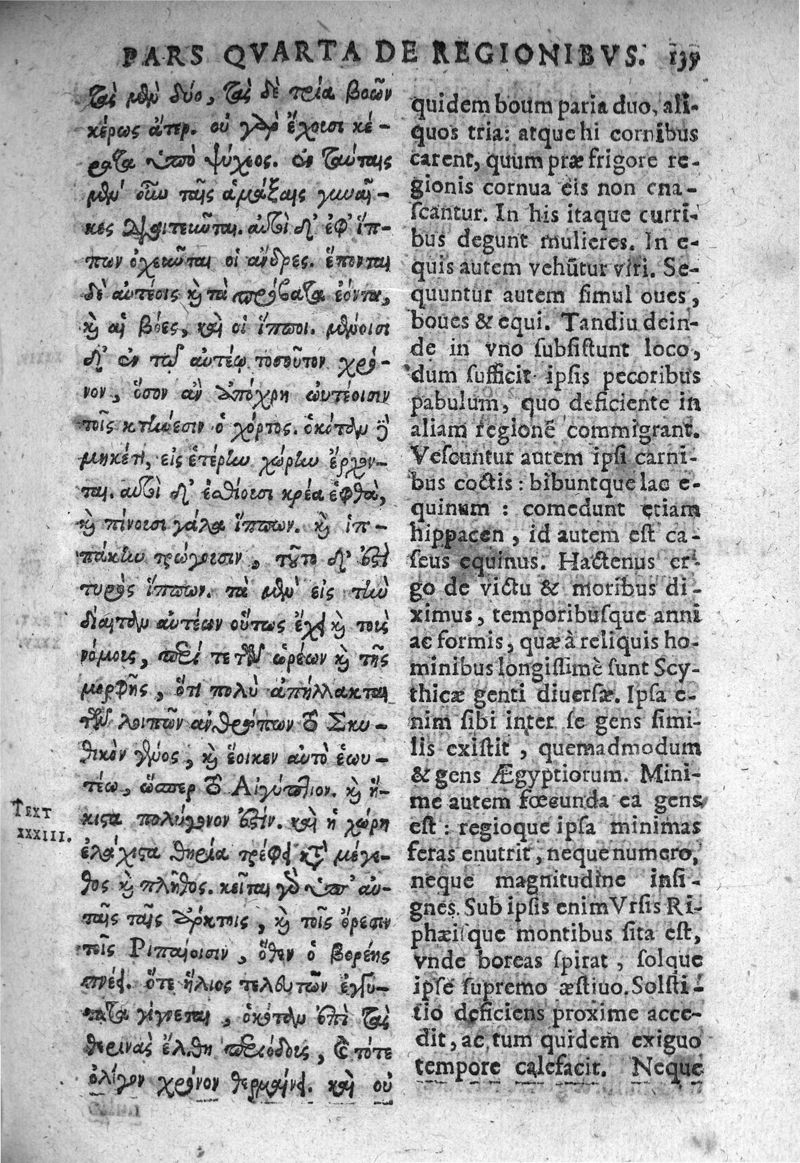 PARS QVARTA DE REGIONIBVS. 139
τὰς μὲν δύο, τὰς δὲ τρία βοῶν
κέρως ἄτερ. οὐ γὰρ ἔχουσι κέ-
ρατα ὑπὸ ψύχεος. ἐν ταύτῃς
μὲν οὖν τῇς ἁμάξῃς γυναῖ-
κες διαιτεῦνται. αὐτοὶ δ' ἐφ' ἵπ-
πων ὀχεῦνται οἱ ἄνδρες. ἕπονται
δὲ αὐτέοις καὶ τὰ πρόβατα ἐόντα,
καὶ αἱ βόες, καὶ οἱ ἵπποι. μένουσι
δ' ἐν τῷ αὐτέῳ τοσοῦτον χρό-
νον, ὅσον ἂν ἀπόχρη ωὐτέοισιν
τοῖς κτήνεσιν ὁ χόρτος. ὁκόταν δὲ
μηκέτι, εἰς ἑτέρην χώρην ἔρχον-
ται. αὐτοὶ δ' ἐσθίουσι κρέα ἑφθὰ,
καὶ πίνουσι γάλα ἵππων. καὶ ἱπ-
πάκην τρώγουσιν, τοῦτο δ' ἐστὶ
τυρὸς ἵππων. τὰ μὲν εἰς τὴν
δίαιταν αὐτέων οὕτως ἔχει καὶ τοὺς
νόμους, περί τε τῶν ὡρέων καὶ τῆς
μορφῆς, ὅτι πολὺ ἀπήλλακται
τῶν λοιπῶν ἀνθρώπων τὸ Σκυ-
θικὸν γένος, καὶ ἔοικεν αὐτὸ ἑωυ-
τέῳ, ὥσπερ τὸ Αἰγύπτιον. καὶ ἥ-
κιστα πολύγονον ἐστίν. καὶ ἡ χώρη
ἐλάχιστα θηρία τρέφει κατὰ μέγε-
θος καὶ πλῆθος. κεῖται γὰρ ὑπ' αὐ-
τῇς τῇς ἄρκτοις, καὶ τοῖς ὄρεσιν
τοῖς Ῥιπαίοισιν, ὅθεν ὁ βορέης
πνέει. ὅτε ἥλιος τελευτῶν ἐγγύ-
τατα γίγνεται, ὁκόταν ἐπὶ τὰς
θερινὰς ἔλθῃ περιόδους, καὶ τότε
ὀλίγον χρόνον θερμαίνει. καὶ οὐ
TEXT
XXXIII.
quidem boum paria duo, ali-
quos tria: atque hi cornibus
carent, quum præ frigore re-
gionis cornua eis non ena-
ſcantur. In his itaque curri-
bus degunt mulieres. In e-
quis autem vehũtur viri. Se-
quuntur autem ſimul oues,
boues & equi. Tandiu dein-
de in vno ſubſiſtunt loco,
dum ſufficit ipſis pecoribus
pabulum, quo deficiente in
aliam regionẽ commigrant.
Veſcuntur autem ipſi carni-
bus coctis: bibuntque lac e-
quinum: comedunt etiam
hippacen, id autem eſt ca-
ſeus equinus. Hactenus er-
go de victu & moribus di-
ximus, temporibuſque anni
ac formis, quæ à reliquis ho-
minibus longiſſimè ſunt Scy-
thicæ genti diuerſæ. Ipſa e-
nim ſibi inter ſe gens ſimi-
lis exiſtit, quemadmodum
& gens Ægyptiorum. Mini-
me autem fœcunda ea gens
eſt: regioque ipſa minimas
feras enutrit, neque numero,
neque magnitudine inſi-
gnes. Sub ipſis enim Vrſis Ri-
phæiſque montibus ſita eſt,
vnde boreas ſpirat, ſolque
ipſe ſupremo æſtiuo. Solſti-
tio deficiens proxime acce-
dit, ac tum quidem exiguo
tempore calefacit. Neque